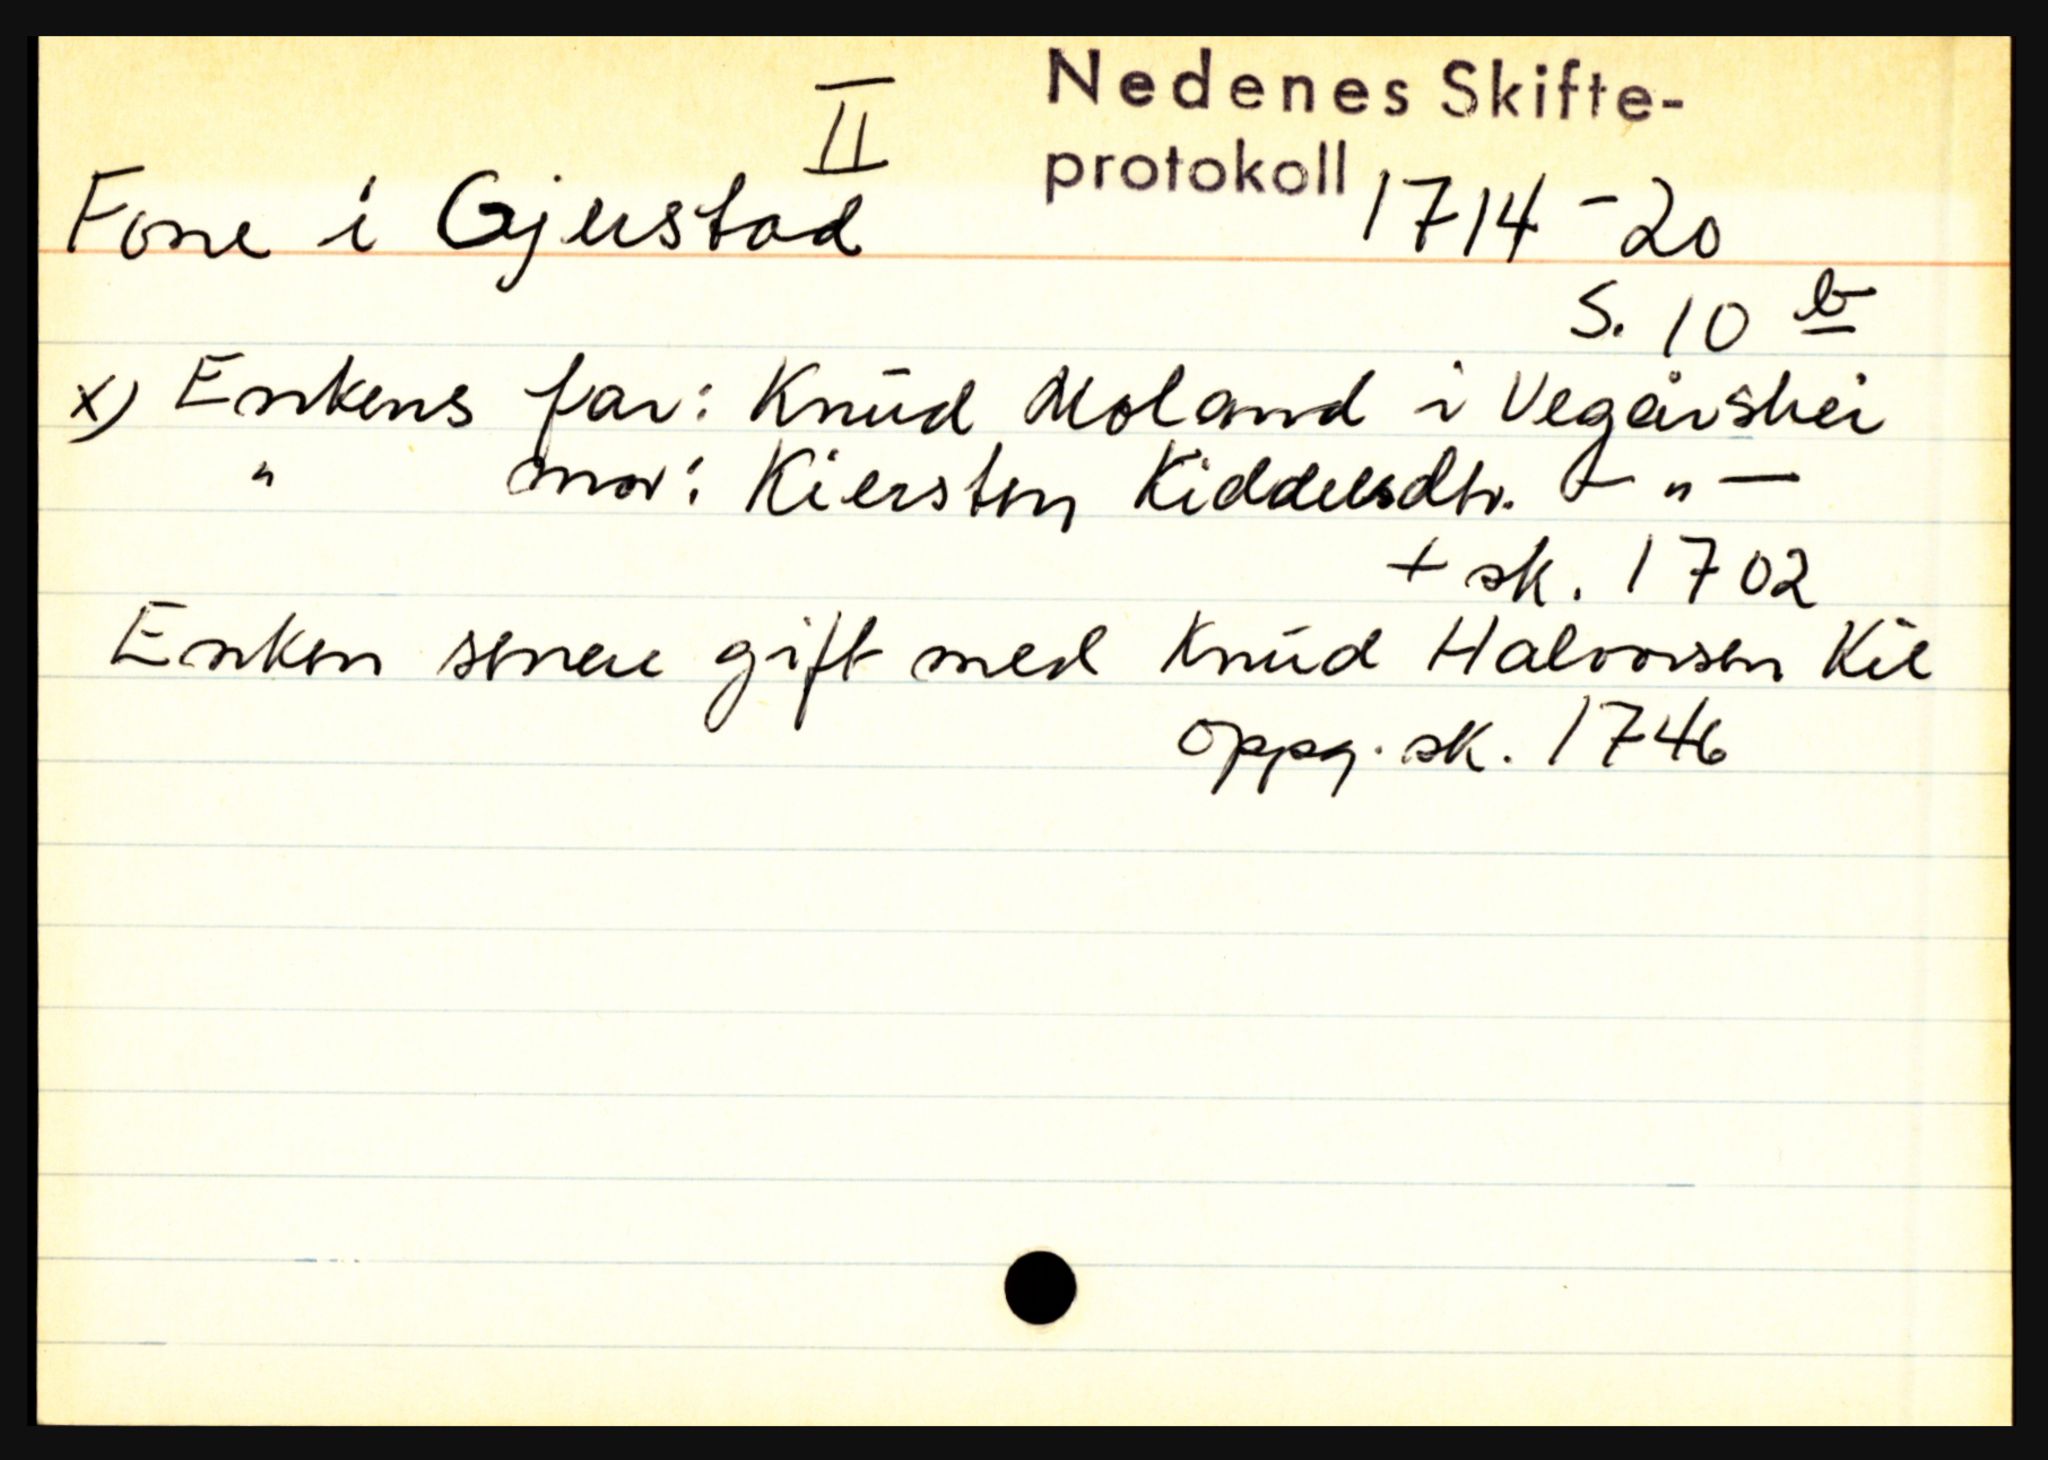 II
Nedenes Skifte-
protokoll 1714-20
Fone i Gjerstad
S. 10 b
x) Enkens far: Knud Moland i Vegårshei
" mor: Kiersten Kiddelsdtr. - " -
+ sk. 1702
Enken senere gift med Knud Halvorsen Kil
oppg. sk. 1746